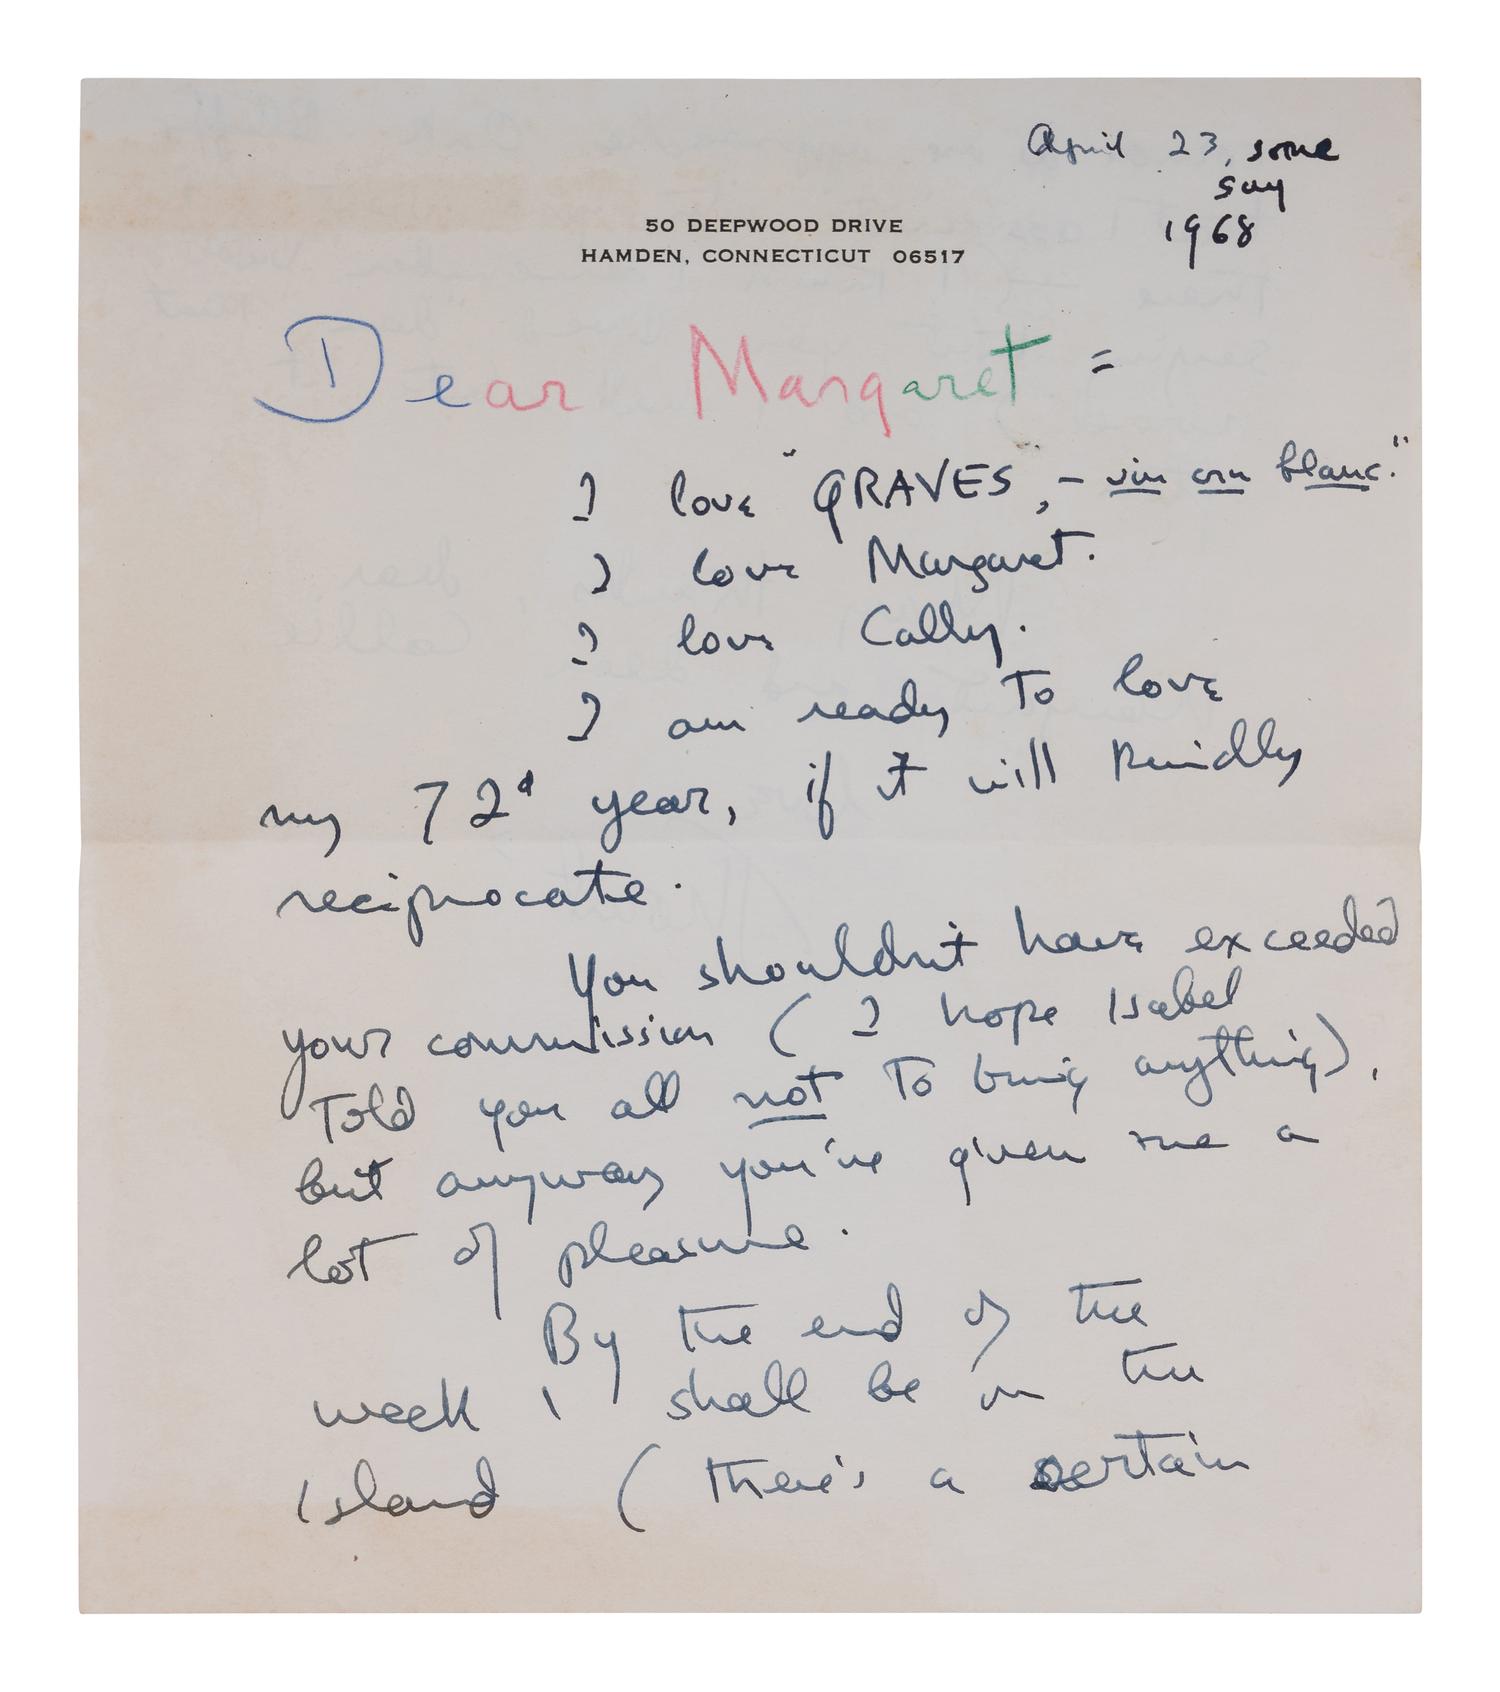 April 23, some
say
1968
50 DEEPWOOD DRIVE
HAMDEN, CONNECTICUT 06517
Dear Margaret =
I love "GRAVES", – vin blanc."
I love Margaret.
I love Cally.
I am ready to love
my 72d year, if it will kindly
reciprocate.
You shouldn't have exceeded
your commission ( I hope Isabel
Told you all not to bring anything),
but anyway you've given me a
lot of pleasure.
By the end of the
week I shall be on the
Island ( there's a certain